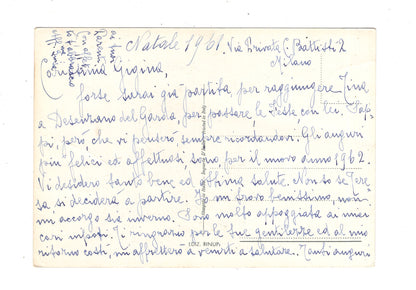 Natale 1961 Via Privata C. Battisti 2
Milano
Carissima Gigina,
forse sarai già partita, per raggiungere Tina
a Desenzano del Garda, per passare le Feste con lei. Sap-
pi, però che vi penserò sempre ricordandovi. Gli auguri
più felici ed affettuosi sono, per il nuovo anno 1962.
Vi desidero tanto bene ed ottima salute. Non so se Tere-
sa si deciderà a partire. Io mi trovo benissimo, non
mi accorgo sia inverno. Sono molto appoggiata ai miei
cari nipoti. Ti ringrazio per le tue gentilezze ed al mio
ritorno costì, mi affretterò a venirti a salutare. Tanti auguri
ai tuoi
Parenti
Con affetto